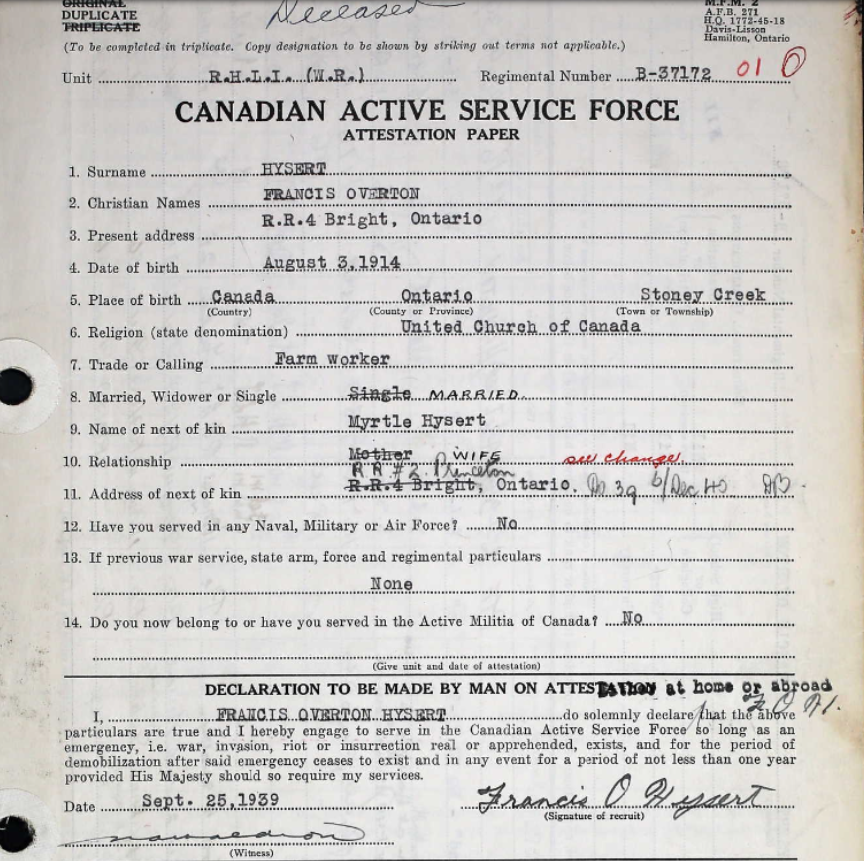 ORIGINAL
DUPLICATE
TRIPLICATE
Deceased
M.F.M. 2
A.F.B. 271
H.Q. 1772-45-18
Davis-Lisson
Hamilton, Ontario
(To be completed in triplicate. Copy designation to be shown by striking out terms not applicable.)
Unit R.H.L.I. (W.R.) Regimental Number B-37172 01 O
CANADIAN ACTIVE SERVICE FORCE
ATTESTATION PAPER
1. Surname HYSERT
2. Christian Names FRANCIS OVERTON
3. Present address R.R.4 Bright, Ontario
4. Date of birth August 3,1914
5. Place of birth Canada Ontario Stoney Creek
(Country) (County or Province) (Town or Township)
6. Religion (state denomination) United Church of Canada
7. Trade or Calling Farm worker
8. Married, Widower or Single Single MARRIED
9. Name of next of kin Myrtle Hysert
10. Relationship Mother WIFE see change
R R #2 Princeton
11. Address of next of kin R.R.4 Bright, Ontario. 39 6/Dec 40
12. Have you served in any Naval, Military or Air Force? No
13. If previous war service, state arm, force and regimental particulars
None
14. Do you now belong to or have you served in the Active Militia of Canada? No
(Give unit and date of attestation)
DECLARATION TO BE MADE BY MAN ON ATTES at home or abroad
I, FRANCIS OVERTON HYSERT do solemnly declare that the above
particulars are true and I hereby engage to serve in the Canadian Active Service Force so long as an
emergency, i.e. war, invasion, riot or insurrection real or apprehended, exists, and for the period of
demobilization after said emergency ceases to exist and in any event for a period of not less than one year
provided His Majesty should so require my services.
Date Sept. 25,1939 Francis O Hysert
(Signature of recruit)
(Witness)